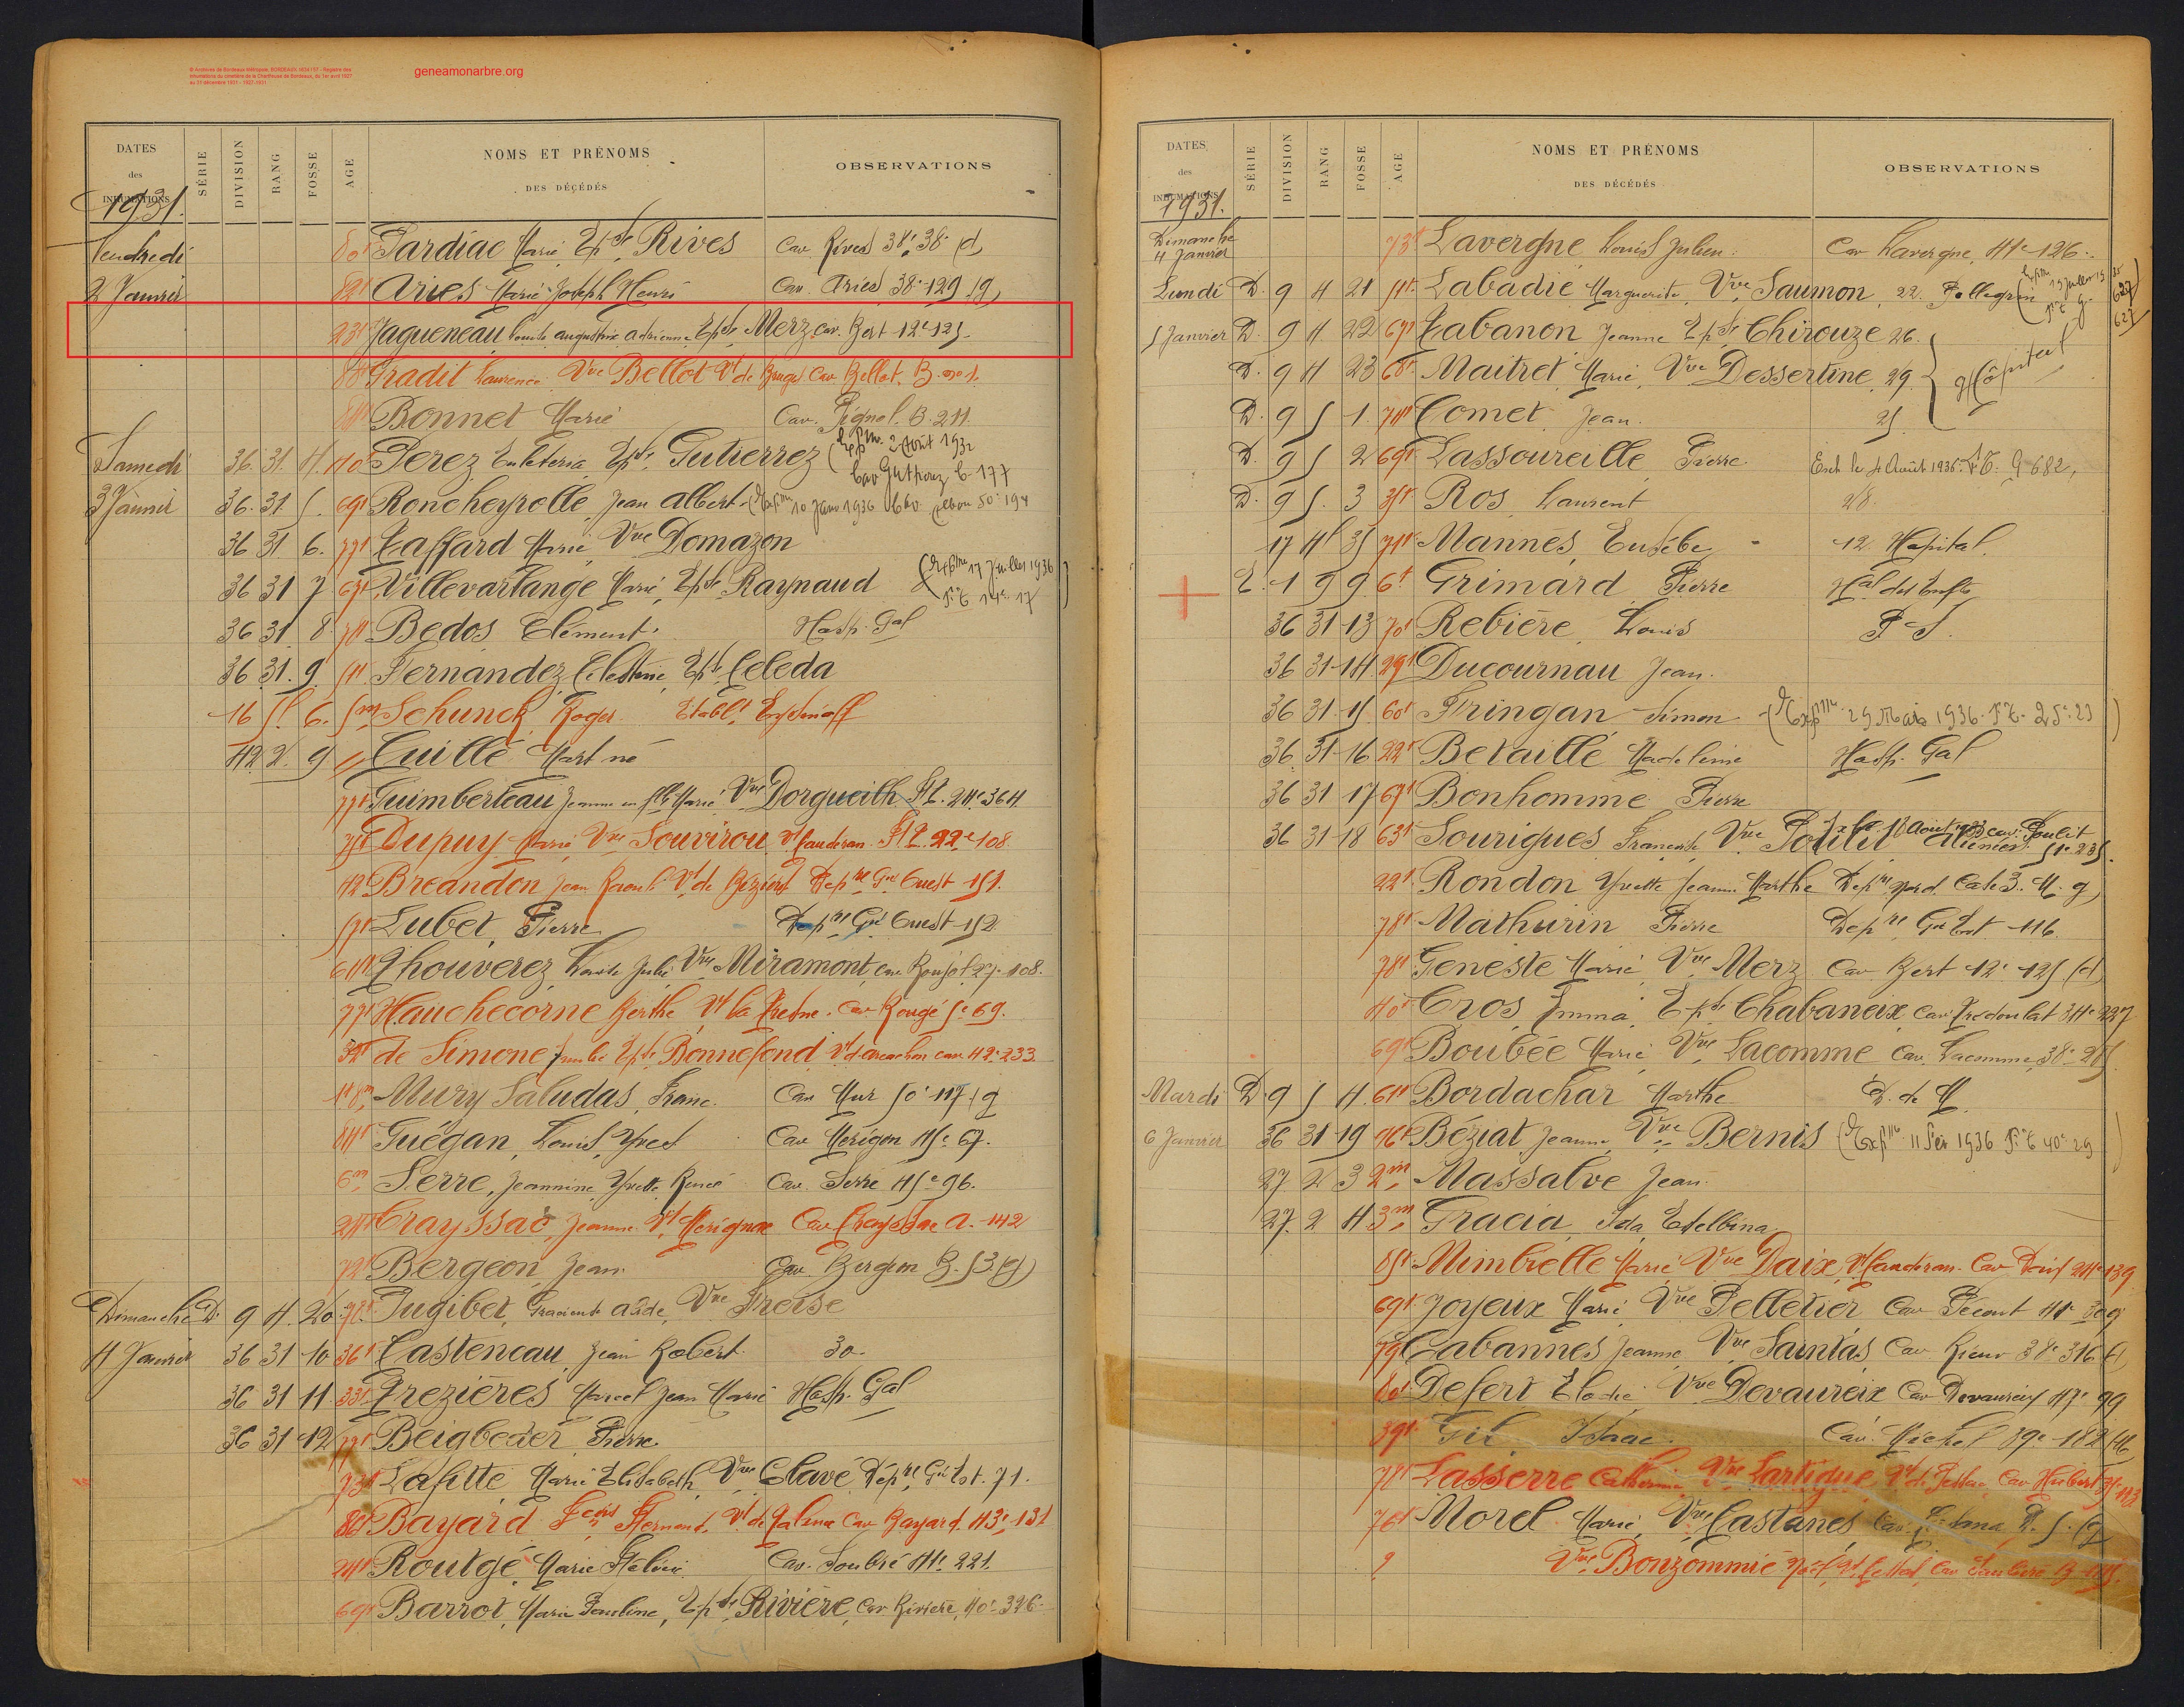 © Archives de Bordeaux Métropole, BORDEAUX - Registre des
inhumations du cimetière de la Chartreuse de Bordeaux, du 1er avril 1927
au 31 décembre 1931 - 1927-1931
geneamonarbre.org
DATES des INHUMATIONS SÉRIE DIVISION RANG FOSSE AGE NOMS ET PRÉNOMS DES DÉCÉDÉS OBSERVATIONS
1931.
Vendredi 80a Tardiac Marie Epse Rives Cav Rives 38e 38 (d)
2 Janvier 82a Aries Marie Joseph Henri Cav. Aries 38e 129 (g)
23a Jaqueneau Louise Augustine Adrienne Epse Merz cav. Bert 12e 125.
Gradit Laurence Vve Bellot Vt de Bruges Cav Bellot. B. no 1.
Bonnet Marie Cav. Pignol. B. 211.
Samedi 36. 31. 4. 40a Perez Euleteria Epse Gutierrez (Exhm. 2 Août 1932
Cav Gutierrez B. 177
3 Janvier 36. 31. 5. 69a Roncheyrolle Jean Albert
36 31 6. 77a Laffard Marie Vve Domazon
36 31 7 67a Villevarlange Marie, Epse Raynaud (Exhme 17 Juillet 1936
36 31 8 Bedos Clément. Hosp. Gal
36 31. 9. 51a Fernandez Célestine Epse Celeda
16 5l 6. 5m Schunck Roger.
42 2 9 Cuillé Mort né
77a Guimberteau Jeanne Marie Vve Dorgueilh P.té. 24e 364
75a Dupuy Marie Vve Souvirou Vt Caudéran P.té. 22e 108.
42a Breandon Jean Vt de Béziers Depre Gle Ouest 151.
57a Lubet Pierre Depre Gle Ouest 152.
Thouverez Louise Julie Vve Miramont, cav 27e 108.
77a Hauchecorne Berthe Vt la Cav Rougé 5e 69.
de Simone Epse Bonnefond Vt d'Arcachon cav 42e 233.
1a 8m Mury Saludas, Franc. Cav Mur 50e 117 g
84a Guégan, Louis, Yves Cav Mérigon 45e 67.
6m Serre, Jeannine Yvette Renée Cav. Serre 45e 96.
24a Crayssac, Jeanne. Vt Merignac Cav Crayssac A. 142
72a Bergeon Jean. Cav. Bergeon B. 53. (g)
Dimanche D. 9 4. 20 78a Jugibet, Vve Freise
4 Janvier 36 31 10 36a Casteneau Jean Robert. 30.
36 31 11. 33a Frezières Marcel Jean Marie Hosp. Gal
36 31 12 77a Beigbeder Pierre.
73a Lafitte Marie Elisabeth, Vve Clavé Depre Gle Est. 71.
80a Bayard Fçois Fernand, Vt de Cav Bayard. 43e 131
24a Routgé Marie Cav. Soubré 41e 221.
69a Barrot, Marie Pauline, Epse Rivière, Cav Rivière, 40e 326.
DATES des INHUMATIONS SÉRIE DIVISION RANG FOSSE AGE NOMS ET PRÉNOMS DES DÉCÉDÉS OBSERVATIONS
1931.
Dimanche 4 Janvier 73a Lavergne Louis Julien. Cav Lavergne, 41e 126.
Lundi D. 9 4 21 51a Labadie Marguerite, Vve Saumon, 22. Pellegrin
5 Janvier D. 9 4. 22 67a Labanon Jeanne Epse Chirouze 26.
D. 9 4 23 68a Maitret Marie, Vve Dessertine. 29. Hôpital
D. 9 5 1. 74a Comet. Jean. 25
D. 9 5 2 69a Lassoureille Pierre. Exh le 4 Août 1936. P.té. G 682.
D. 9 5. 3 35a Ros Laurent 28.
17 4l 35 71a Mannes Eusèbe 12 Hopital.
E. 1 9 9. 6a Grimard Pierre Hal des Enfts
36 31 13 70a Rebière Louis P-S.
36 31 14. 29a Ducournau Jean.
36 31 15 60a Fringan Simon (Exhme 29 Mars 1936. P.té. 25e 23)
36. 31 16 22a Betaillé Madeleine Hosp. Gal
36 31 17 67a Bonhomme Pierre
36 31 18 63a Sourigues Françoise Vve Poulit
22a Rondon Yvette Jeanne Marthe
78a Mathurin Pierre Depre Gle Est 116.
78a Geneste Marie Vve Merz Cav Bert 12e 125 (d)
40a Cros Emma, Epse Chabaneix Cav. Tredoulat 34e 227
69a Boubée Marie Vve Lacomme Cav. Lacomme, 38e 285.
Mardi D 9 5 4. 61a Bordachar Marthe D. de M.
6 Janvier 36 31 19 76a Béziat Jeanne Vve Bernis (Exhme 11 Fév 1936 P.té 40e 29)
27. 2 3 2m Massalve Jean.
27. 2 4 3m Gracia, Ida, Edelbina
85a Mimbielle Marie Vve Daix, Vt Caudéran. Cav Daix 24e 139
69a Joyeux Marie Vve Pelletier Cav Pécout 41e 309
79a Cabannes Jeanne Vve Saintas Cav Rieux 38e 316 (d)
80a Defert Elodie Vve Devaureix Cav Devaureix 47e 99
39a Gil. Isaac. Cav. Michel 39e 182
77a Lasserre Catherine Vve Lartigue, Vt de Pessac Cav Hubert
76a Morel Marie Vve Castanes
? Vve Bonzommie